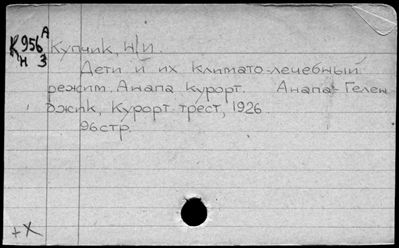 К956 А Купчик, Н/И.
Н 3
Дети и их климато-лечебный
режим. Анапа курорт. Анапа-Гелен
джик, Курорт трест, 1926
96стр.
+X